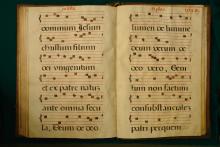 dominum Iesum
christum filium
dei unigenitum
et ex patre natus
ante omnia secu
la, Deum de deo
lumen de lumine
deum verum de
deo vero, Geni
tum non factum
patri per quem